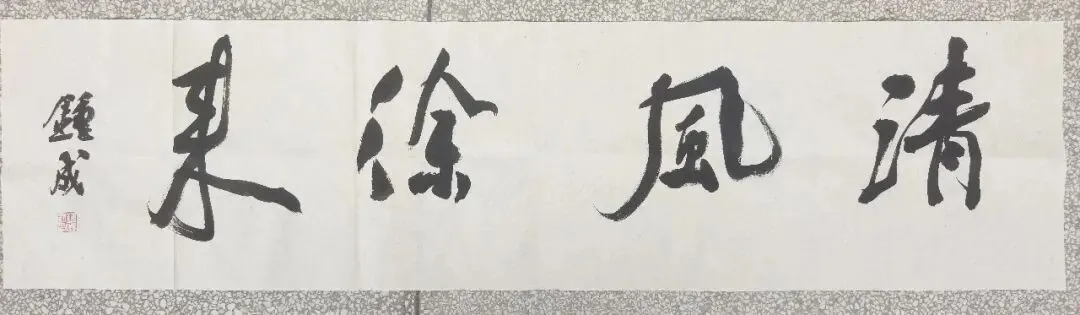 清風徐来
鍾成